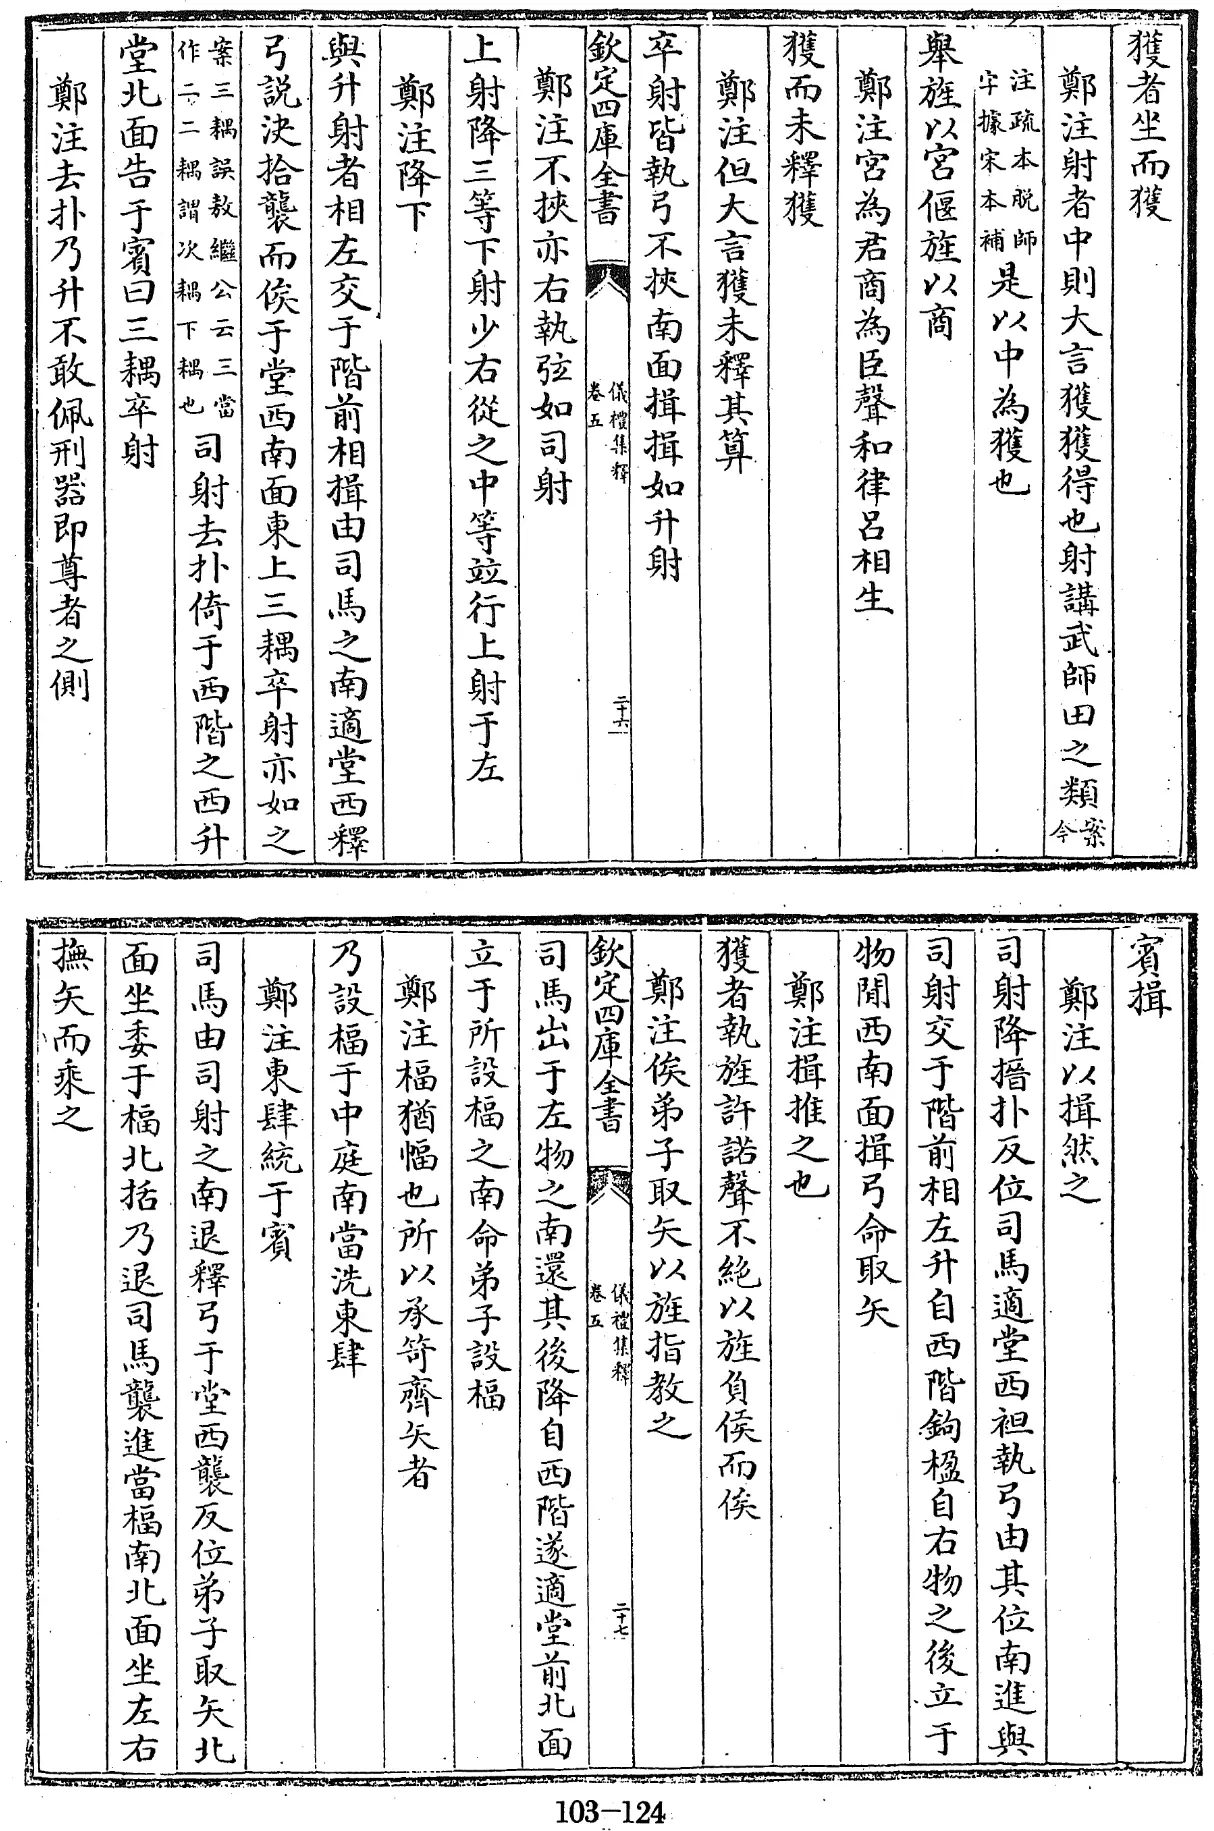 獲者坐而獲
鄭注射者中則大言獲獲得也射講武師田之類案今
注疏本脱師字據宋本補是以中為獲也
舉旌以宮偃旌以商
鄭注宮為君商為臣聲和律呂相生
獲而未釋獲
鄭注但大言獲未釋其算
卒射皆執弓不挾南面揖揖如升射
欽定四庫全書
儀禮集釋
卷五
二十六
鄭注不挾亦右執弦如司射
上射降三等下射少右從之中等竝行上射于左
鄭注降下
與升射者相左交于階前相揖由司馬之南適堂西釋
弓説決拾襲而俟于堂西南面東上三耦卒射亦如之
案三耦誤敖繼公云三當作二二耦謂次耦下耦也司射去扑倚于西階之西升
堂北面告于賓曰三耦卒射
鄭注去扑乃升不敢佩刑器即尊者之側
賓揖
鄭注以揖然之
司射降搢扑反位司馬適堂西袒執弓由其位南進與
司射交于階前相左升自西階鉤楹自右物之後立于
物閒西南面揖弓命取矢
鄭注揖推之也
獲者執旌許諾聲不絶以旌負侯而俟
鄭注俟弟子取矢以旌指教之
欽定四庫全書
儀禮集釋
卷五
二十七
司馬出于左物之南還其後降自西階遂適堂前北面
立于所設楅之南命弟子設楅
鄭注楅猶幅也所以承笴齊矢者
乃設楅于中庭南當洗東肆
鄭注東肆統于賓
司馬由司射之南退釋弓于堂西襲反位弟子取矢北
面坐委于楅北括乃退司馬襲進當楅南北面坐左右
撫矢而乘之
103-124